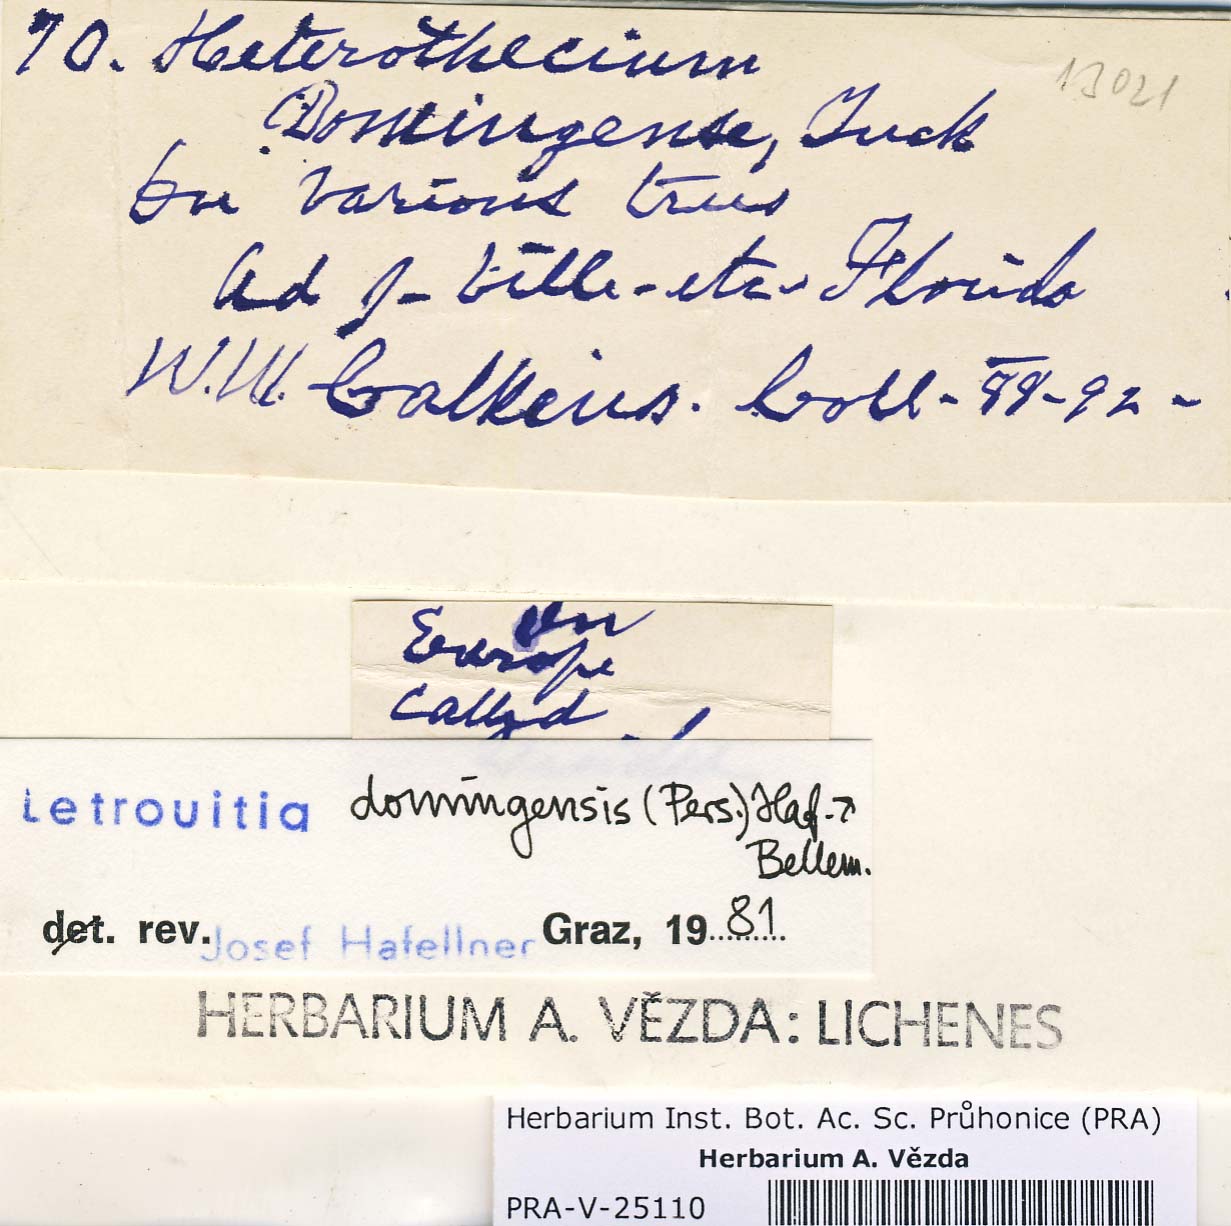 70. Heterothecium
13021
Domingense, Tuck
On various trees
Ad J-ville-etc- Florida
W.W. Calkins. Coll- 88-92-
In
Europe
Called
Letrouitia domingensis (Pers.) Haf. ↗
Bellem.
det. rev. Josef Hafellner Graz, 1981
HERBARIUM A. VĚZDA: LICHENES
Herbarium Inst. Bot. Ac. Sc. Průhonice (PRA)
Herbarium A. Vězda
PRA-V-25110